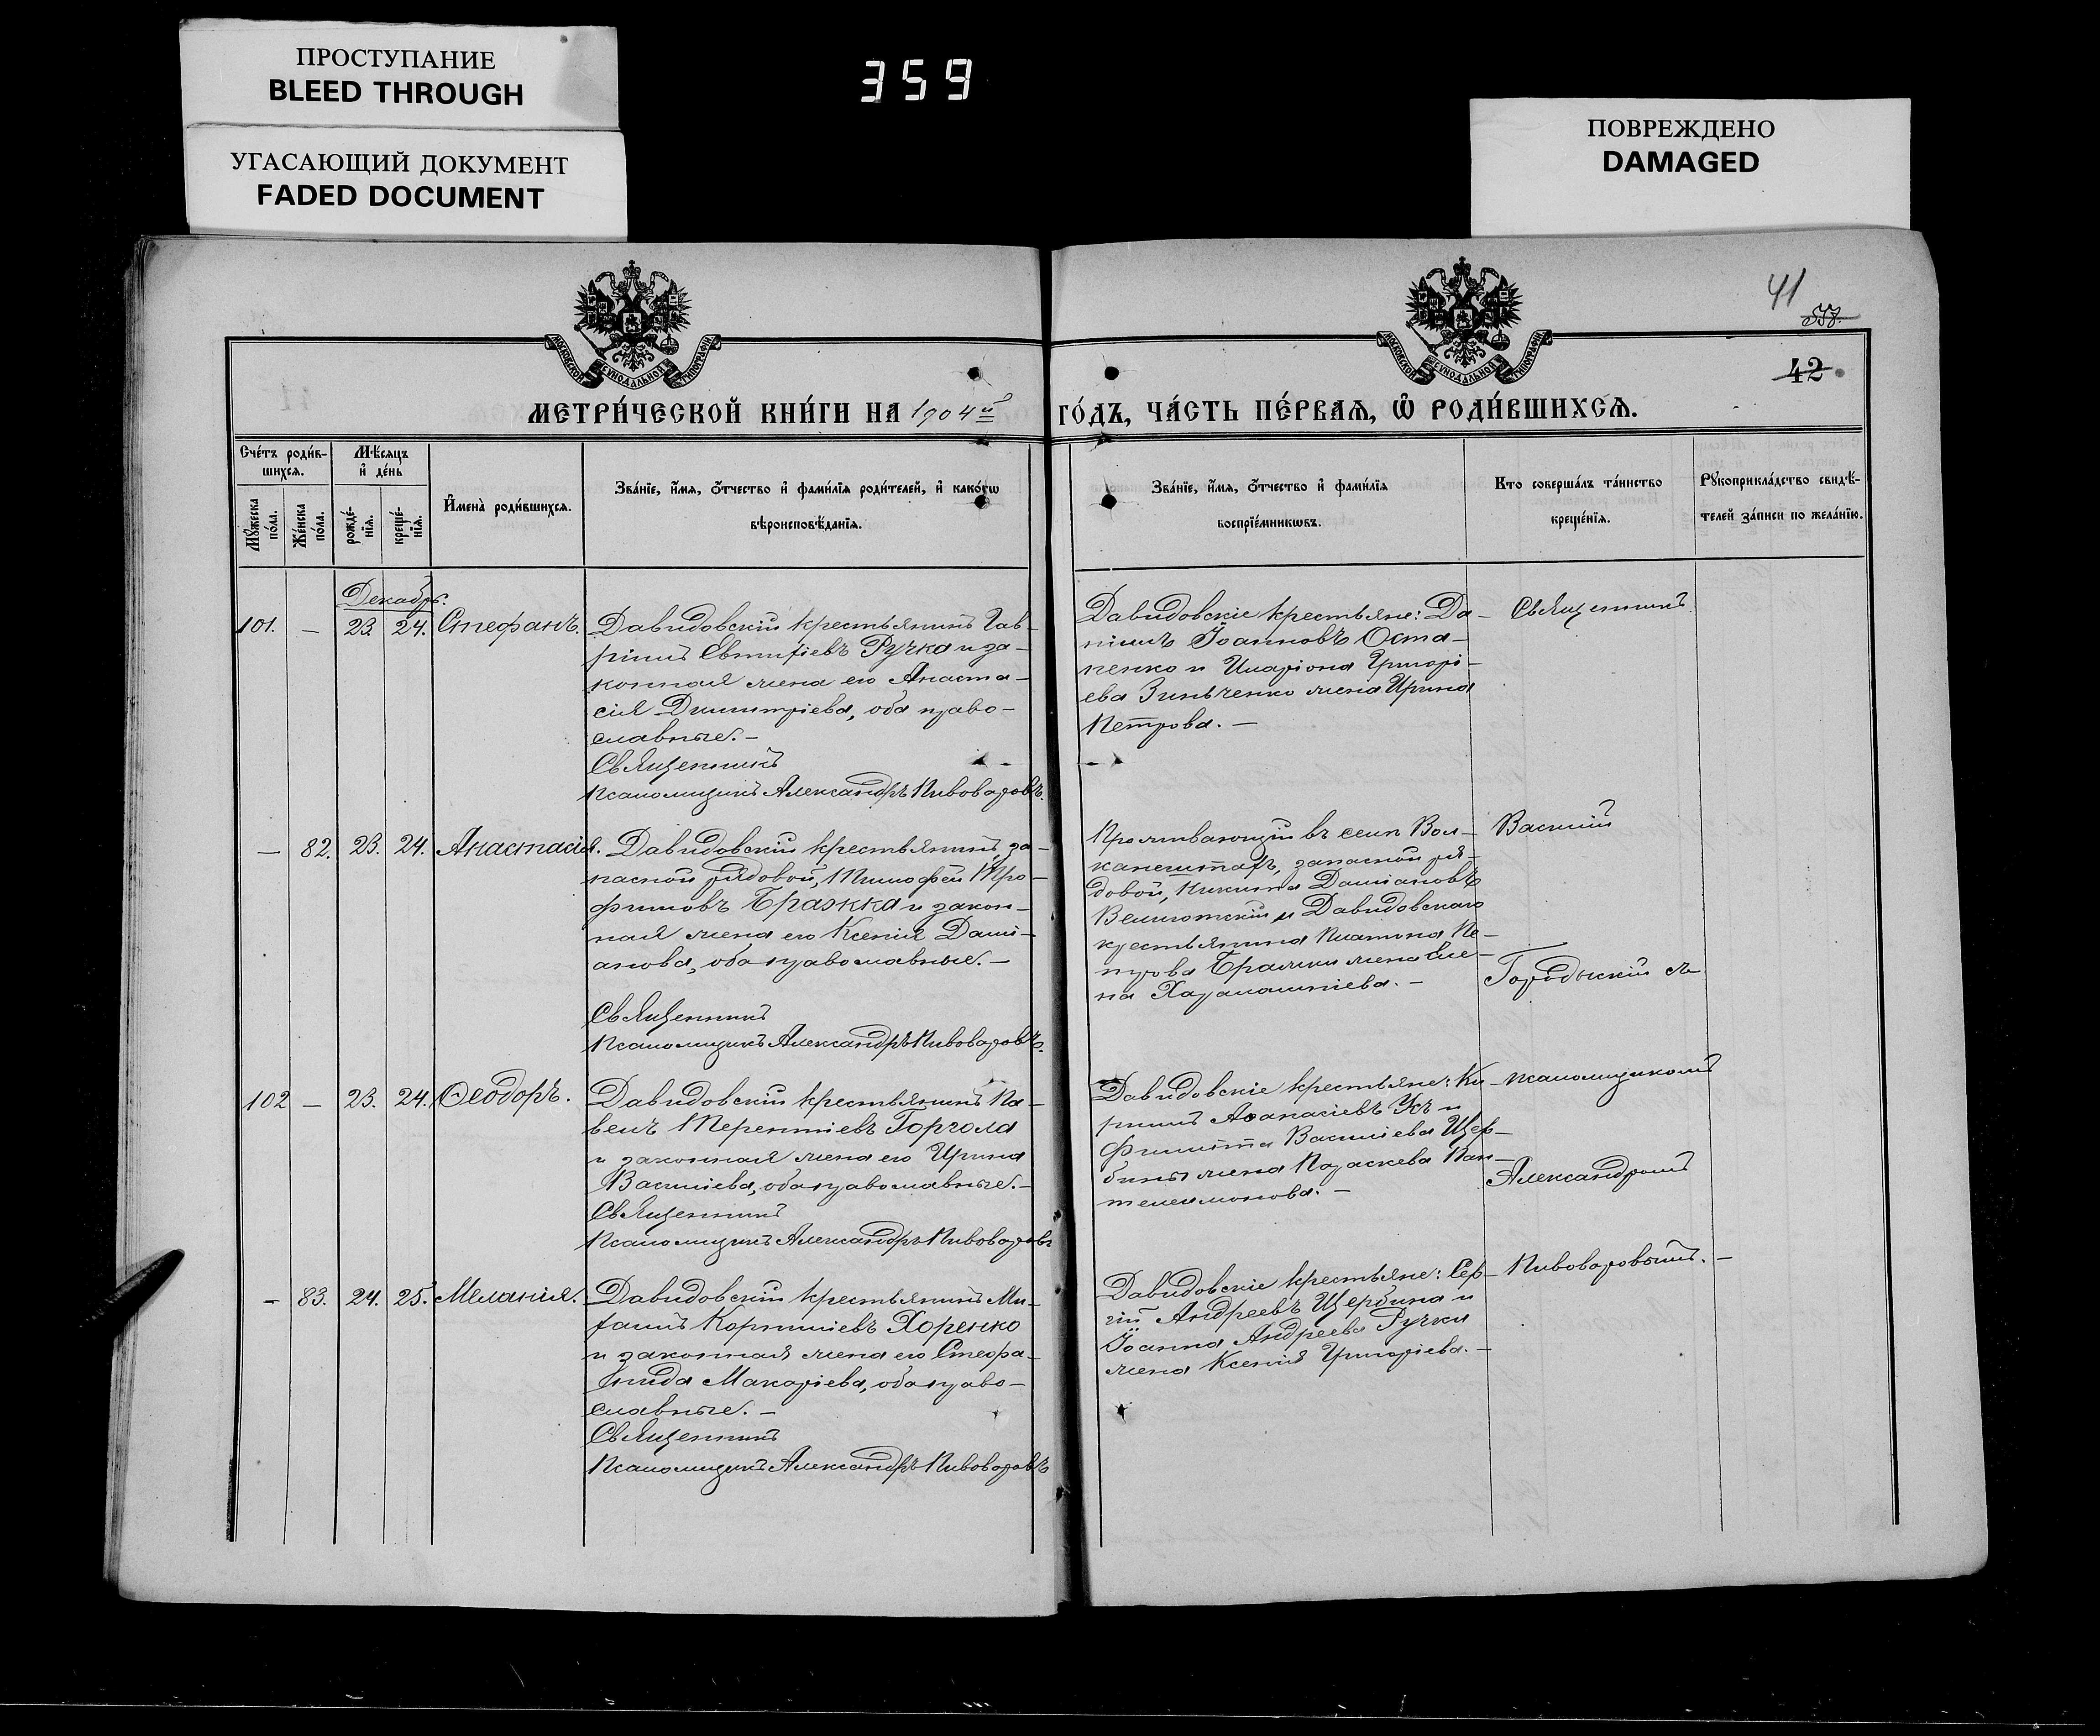 ПРОСТУПАНИЕ
BLEED THROUGH
УГАСАЮЩИЙ ДОКУМЕНТ
FADED DOCUMENT
359
ПОВРЕЖДЕНО
DAMAGED
41
42
МОСКОВСКОЙ СѴНОДАЛЬНОЙ ТИПОГРАФІИ
МОСКОВСКОЙ СѴНОДАЛЬНОЙ ТИПОГРАФІИ
МЕТРИ́ЧЕСКОЙ КНИ́ГИ НА 1904й ГО́ДЪ, ЧА́СТЬ ПЕ́РВАѦ, Ѽ РОДИ́ВШИХСѦ.
Сче́тъ роди́в-
шихсѧ.
Мꙋ́жеска
по́ла.
Же́нска
по́ла.
Мѣ́сѧцъ
и҆ де́нь
рожде́-
нїѧ.
креще́-
нїѧ.
И҆мена̀ роди́вшихсѧ.
Зва́нїе, и҆́мѧ, ѻ҆́тчество и҆ фами́лїѧ роди́телей, и҆ како́гѡ
вѣроисповѣ́данїѧ.
Зва́нїе, и҆́мѧ, ѻ҆́тчество и҆ фами́лїѧ
воспрїе́мникѡвъ.
Кто соверша́лъ та́инство
креще́нїѧ.
Рꙋкоприкла́дство свидѣ́-
телей за́писи по жела́нїю.
Декабрь.
101. — 23. 24. Стефанъ.
Давидовскій крестьянинъ Гав-
ріилъ Евтихіевъ Ручка и за-
конная жена его Анаста-
сія Димитріева, оба право-
славные. —
Священникъ
Псаломщикъ Александръ Пивоваровъ.
Давидовскіе крестьяне: Да-
ніилъ Іоанновъ Оста-
пенко и Иларіона Григорі-
ева Зинченко жена Ирина
Петрова. —
Священникъ
— 82. 23. 24. Анастасія.
Давидовскій крестьянинъ, за-
пасной рядовой, Тимофей Тро-
фимовъ Бражка и закон-
ная жена его Ксенія Дамі-
анова, оба православные. —
Священникъ
Псаломщикъ Александръ Пивоваровъ.
Проживающій въ селѣ Вол-
канештахъ, запасной ря-
довой, Никита Даміановъ
и Давидовскаго
крестьянина Платона Пе-
трова Бражки жена Еле-
на Харалампіева. —
Василій
Городискій съ
102 — 23. 24. Ѳеодоръ.
Давидовскій крестьянинъ Па-
велъ Терентіевъ Горгола
и законная жена его Ирина
Василіева, оба православные. —
Священникъ
Псаломщикъ Александръ Пивоваровъ
Давидовскіе крестьяне: Ки-
риллъ Аѳанасіевъ Усъ и
Филиппа Василіева Щер-
бины жена Параскева Пан-
телеимонова. —
псаломщикомъ
Александромъ
— 83. 24. 25. Меланія.
Давидовскій крестьянинъ Ми-
хаилъ Корниліевъ Хоренко
и законная жена его Стефа-
нида Макаріева, оба право-
славные. —
Священникъ
Псаломщикъ Александръ Пивоваровъ
Давидовскіе крестьяне: Сер-
гій Андреевъ Щербина и
Іоанна Андреева Ручки
жена Ксенія Григоріева. —
Пивоваровымъ. —